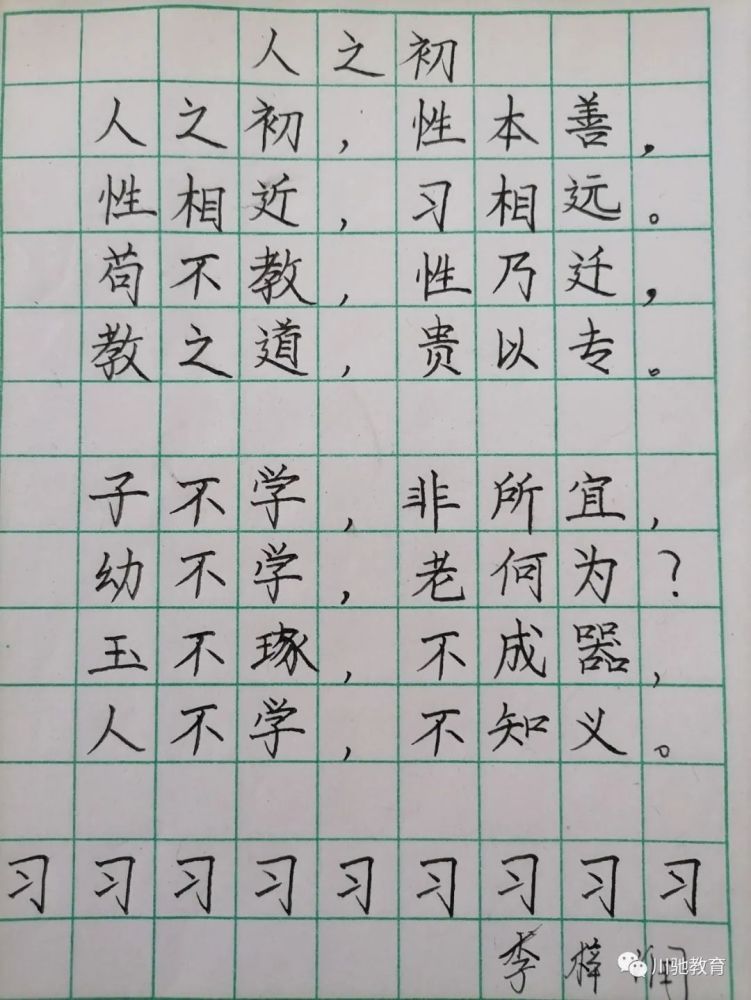 人之初
人之初，性本善，
性相近，习相远。
苟不教，性乃迁，
教之道，贵以专。
子不学，非所宜，
幼不学，老何为？
玉不琢，不成器，
人不学，不知义。
习习习习习习习习习
李梓
川驰教育